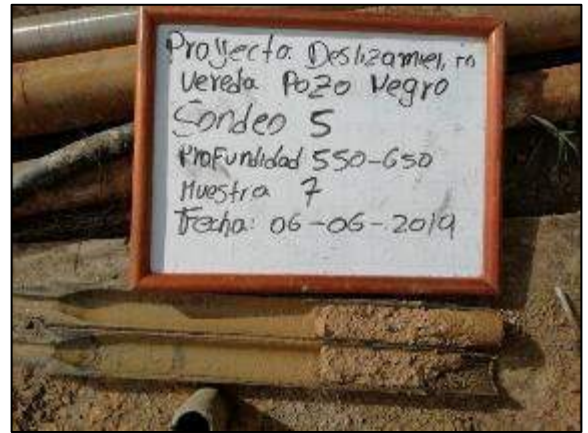 Proyecto: Deslizamiento
Vereda Pozo Negro
Sondeo 5
Profundidad 550-650
Muestra 7
Fecha: 06-06-2019